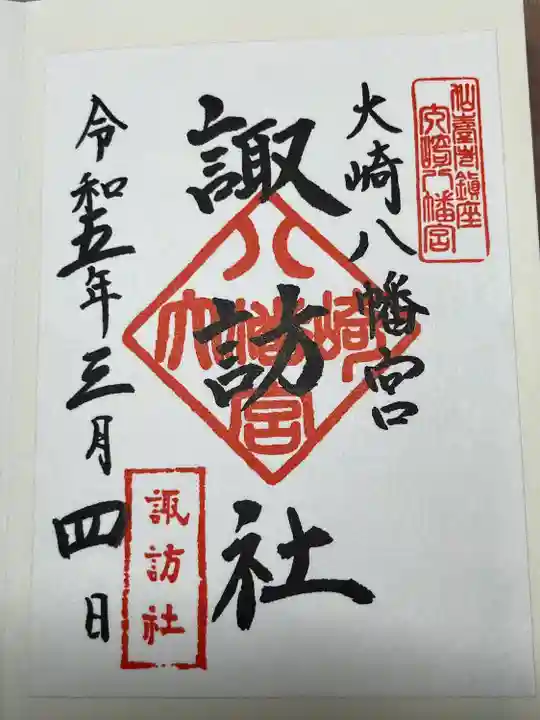 仙臺市鎮座
大崎八幡宮
大崎八幡宮
諏訪社
大崎八幡宮
令和五年三月四日
諏訪社